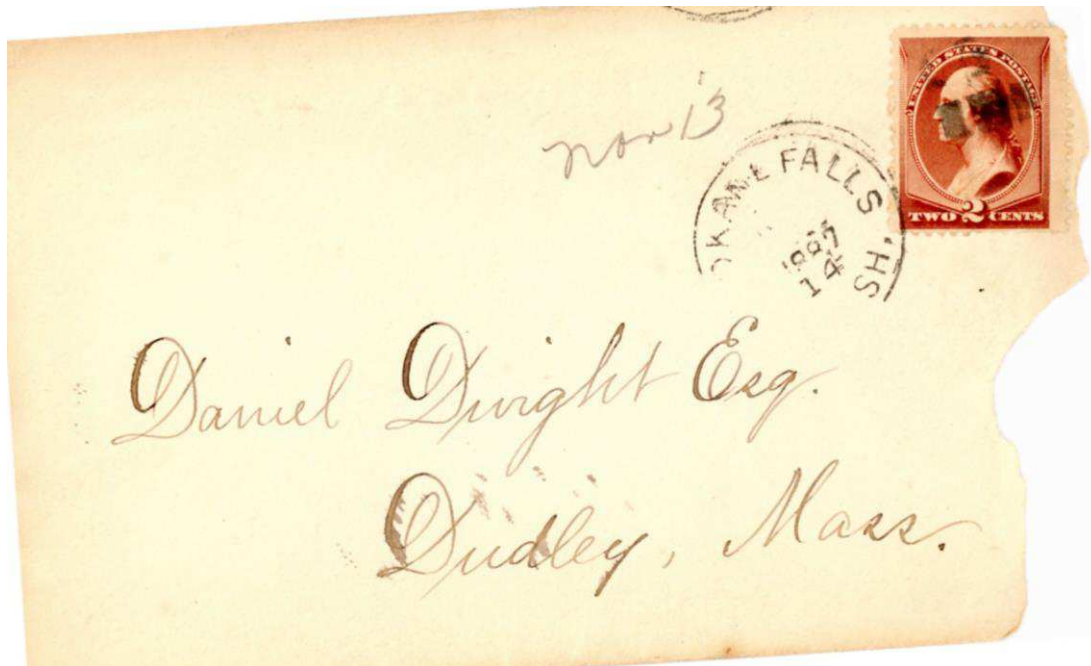 UNITED STATES POSTAGE
TWO 2 CENTS
Nov 13
OKANE FALLS
SH.
Daniel Dwight Esq.
Dudley, Mass.